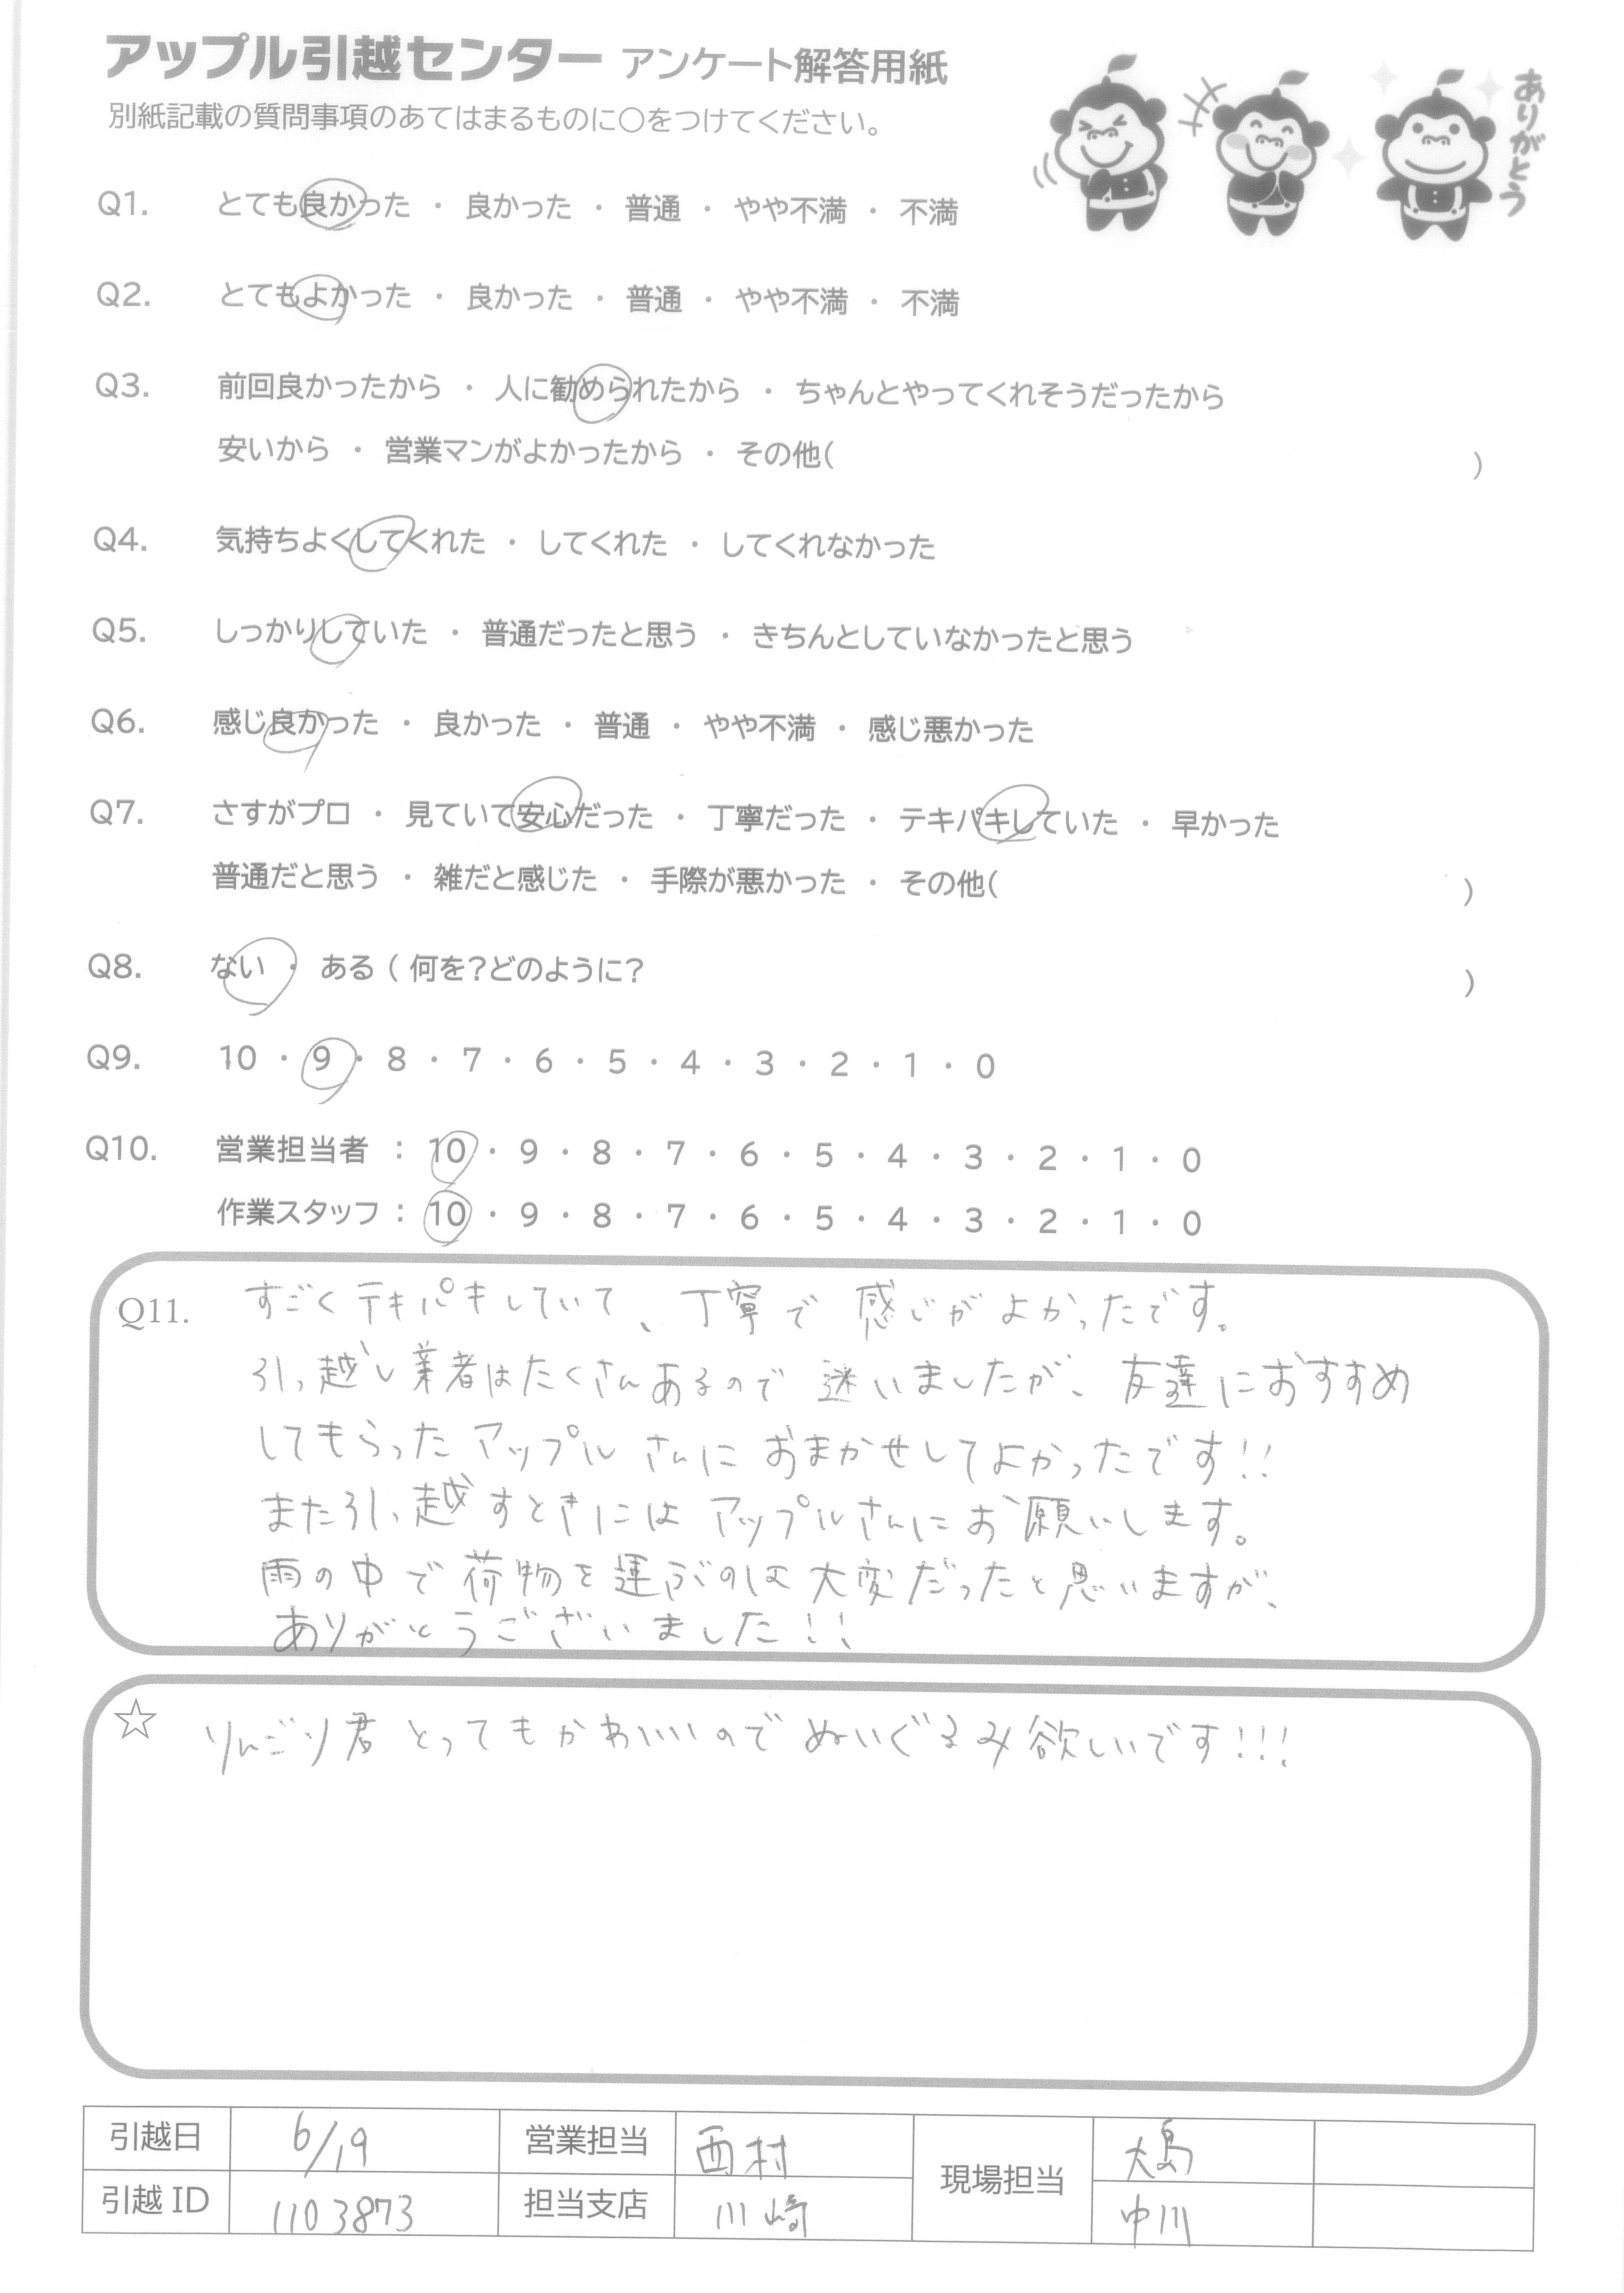 アップル引越センター アンケート解答用紙
別紙記載の質問事項のあてはまるものに○をつけてください。
ありがとう
Q1. とても良かった ・ 良かった ・ 普通 ・ やや不満 ・ 不満
Q2. とてもよかった ・ 良かった ・ 普通 ・ やや不満 ・ 不満
Q3. 前回良かったから ・ 人に勧められたから ・ ちゃんとやってくれそうだったから
安いから ・ 営業マンがよかったから ・ その他( )
Q4. 気持ちよくしてくれた ・ してくれた ・ してくれなかった
Q5. しっかりしていた ・ 普通だったと思う ・ きちんとしていなかったと思う
Q6. 感じ良かった ・ 良かった ・ 普通 ・ やや不満 ・ 感じ悪かった
Q7. さすがプロ ・ 見ていて安心だった ・ 丁寧だった ・ テキパキしていた ・ 早かった
普通だと思う ・ 雑だと感じた ・ 手際が悪かった ・ その他( )
Q8. ない ・ ある ( 何を?どのように? )
Q9. 10 ・ 9 ・ 8 ・ 7 ・ 6 ・ 5 ・ 4 ・ 3 ・ 2 ・ 1 ・ 0
Q10. 営業担当者 : 10 ・ 9 ・ 8 ・ 7 ・ 6 ・ 5 ・ 4 ・ 3 ・ 2 ・ 1 ・ 0
作業スタッフ : 10 ・ 9 ・ 8 ・ 7 ・ 6 ・ 5 ・ 4 ・ 3 ・ 2 ・ 1 ・ 0
Q11. すごくテキパキしていて、丁寧で感じがよかったです。
引っ越し業者はたくさんあるので迷いましたが、友達におすすめ
してもらったアップルさんにおまかせしてよかったです!!
また引っ越すときにはアップルさんにお願いします。
雨の中で荷物を運ぶのは大変だったと思いますが、
ありがとうございました!!
☆ りんごり君とってもかわいいのでぬいぐるみ欲しいです!!!
引越日 6/19 営業担当 西村 現場担当 大島
引越ID 1103873 担当支店 川崎 中川